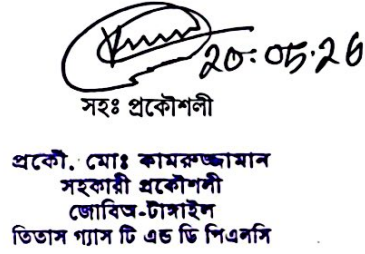 20.05.26
সহঃ প্রকৌশলী
প্রকৌ. মোঃ কামরুজ্জামান
সহকারী প্রকৌশলী
জোবিঅ-টাঙ্গাইল
তিতাস গ্যাস টি এন্ড ডি পিএলসি